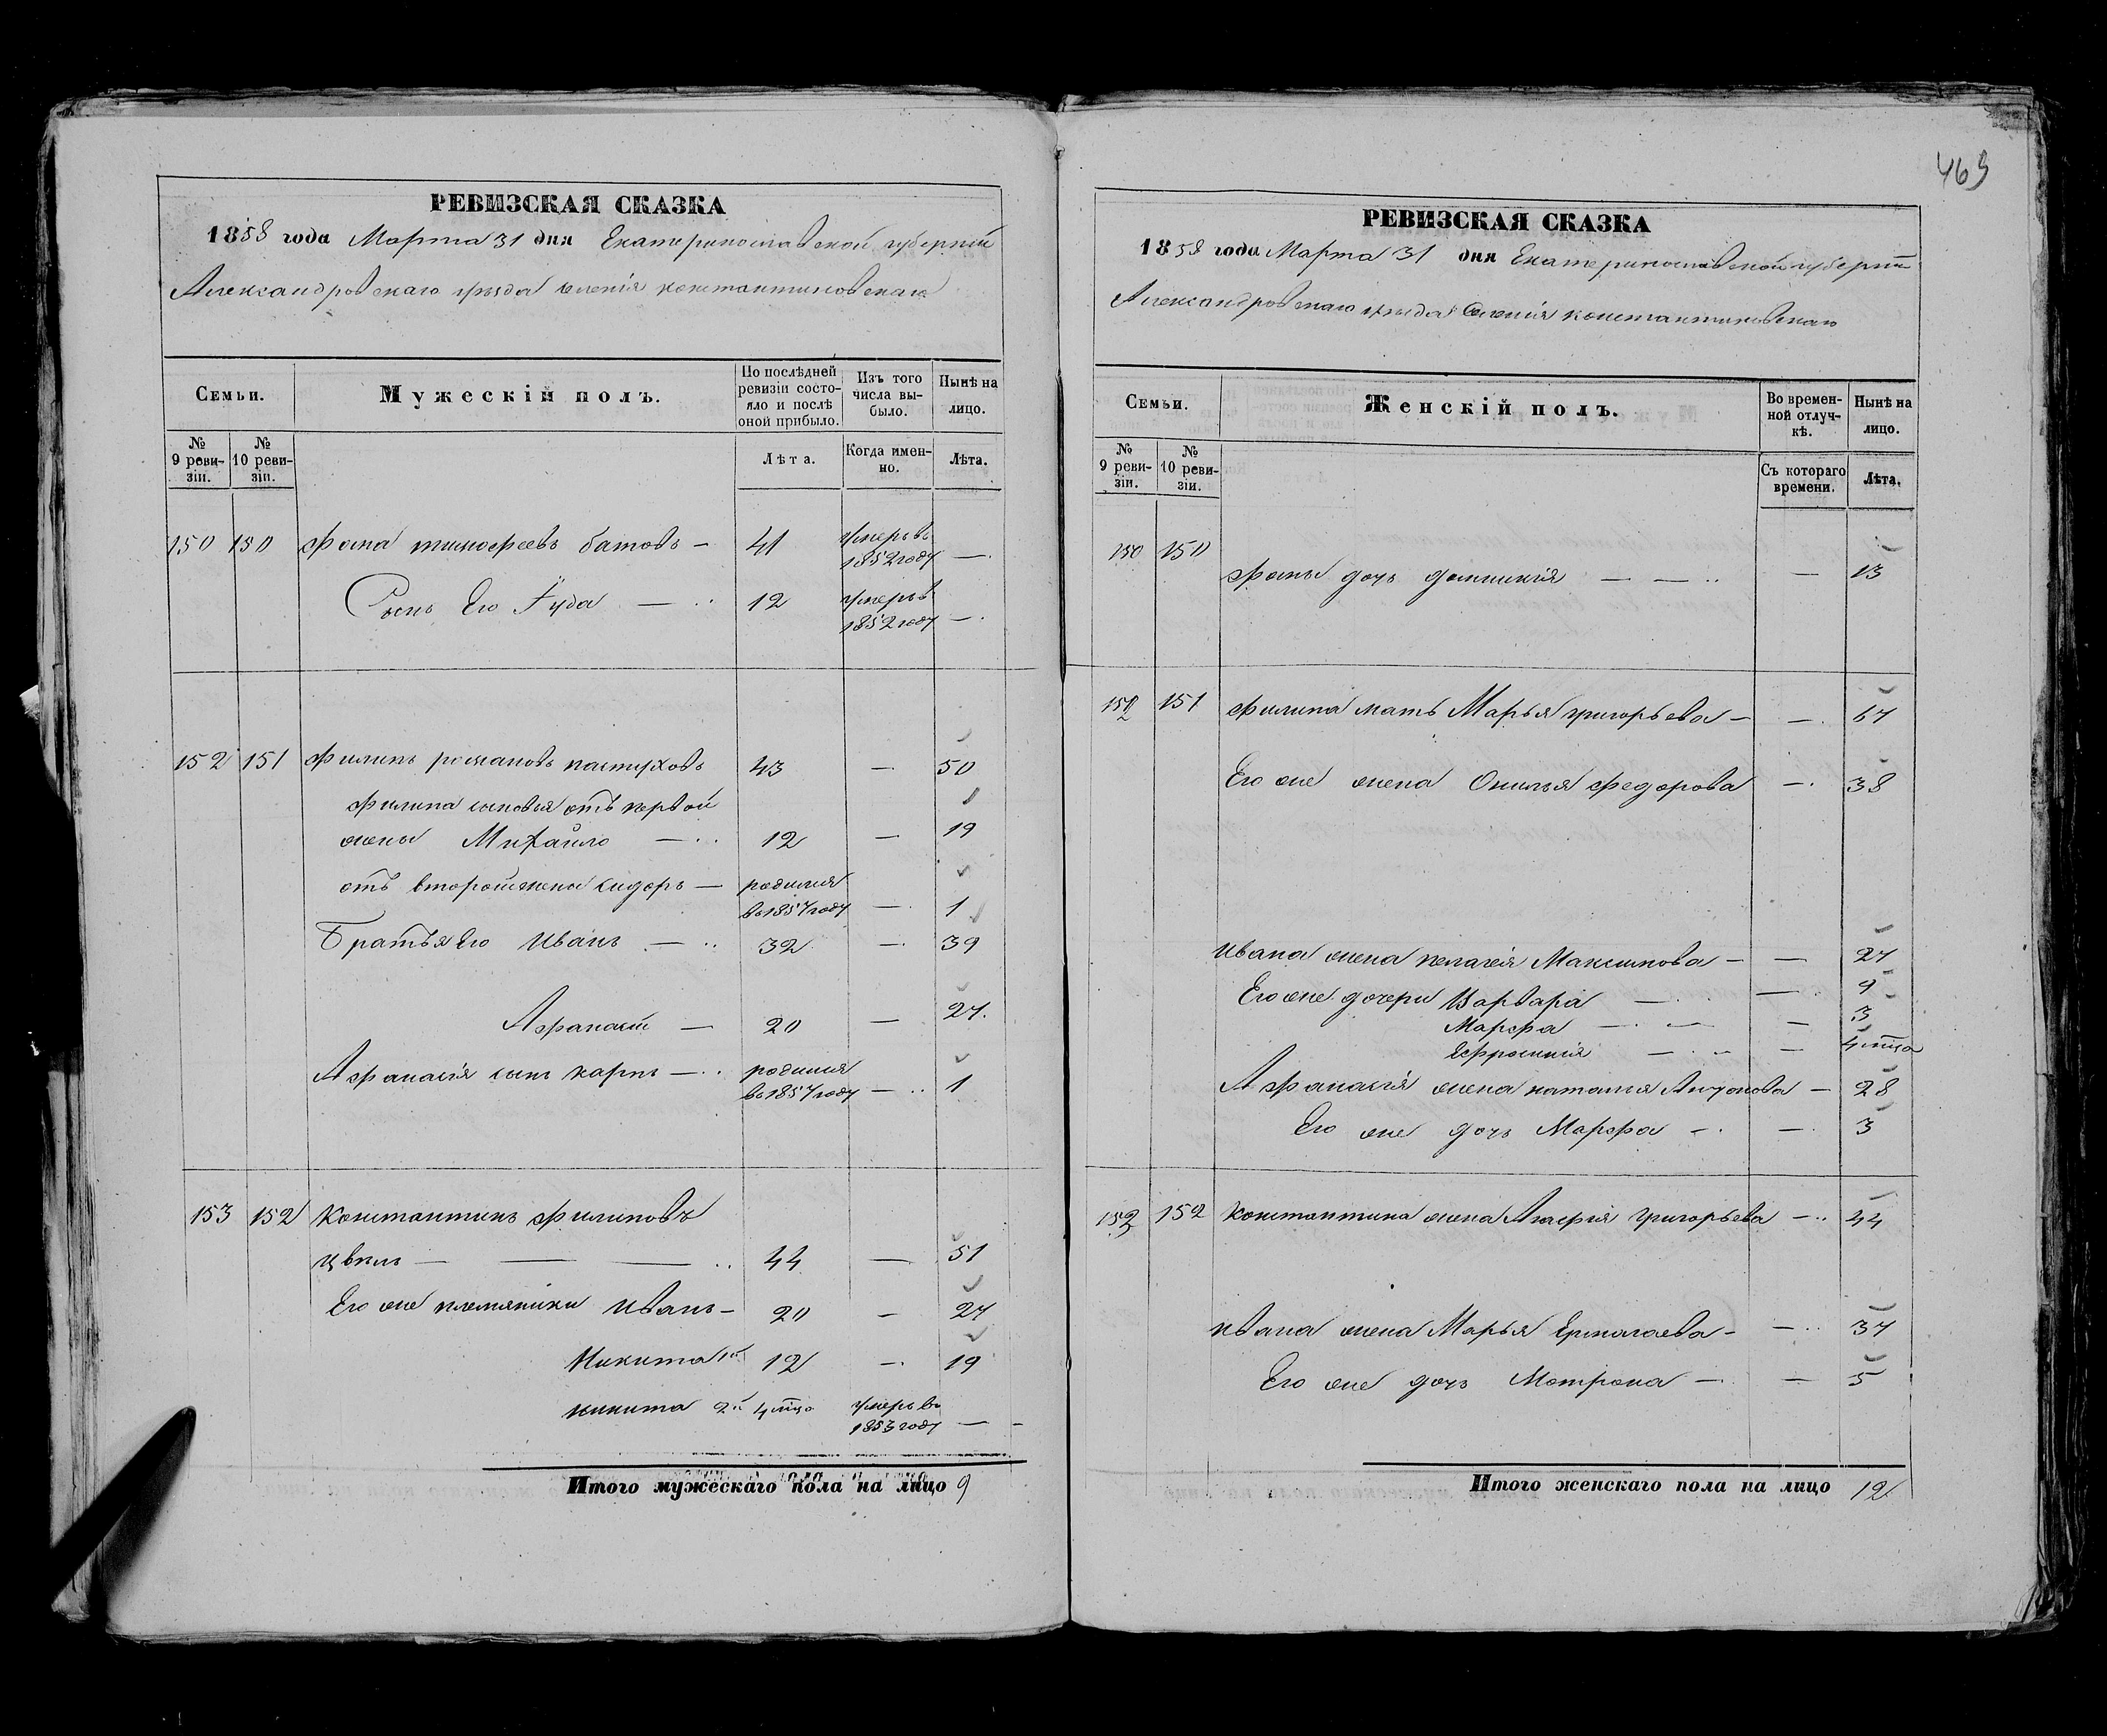 463
РЕВИЗСКАЯ СКАЗКА
1858 года Марта 31 дня Екатеринославской губернии
Александровскаго уѣзда селенія константиновскаго
Семьи.
Мужескій полъ.
По послѣдней ревизіи состояло и послѣ оной прибыло.
Изъ того числа выбыло.
Нынѣ на лицо.
№ 9 ревизіи.
№ 10 ревизіи.
Лѣта.
Когда именно.
Лѣта.
150 150 Фома тимофеевъ батовъ — 41 умеръ въ 1852 году —
Сынъ Его Іуда — 12 умеръ в 1852 году —
152 151 Филипъ романовъ пастуховъ 43 — 50
Филипа сыновья отъ первой
жены Михайло — 12 — 19
отъ второй жены сидоръ — родился во 1857 году — 1
Братья Его Иванъ — 32 — 39
Афанасій — 20 — 27.
Афанасія сынъ карпъ — родился во 1857 году — 1
153 152 Константинъ филиповъ
цвпль — 44 — 51
Его же племяники Иванъ — 20 — 27
Никита 1й 12 — 19
никита 2й 4 мца умеръ въ 1853 году —
Итого мужескаго пола на лицо 9
РЕВИЗСКАЯ СКАЗКА
1858 года Марта 31 дня Екатеринославской губерніи
Александровскаго уѣзда Селенія константиновскаго
Семьи.
Женскій полъ.
Во временной отлучкѣ.
Нынѣ на лицо.
№ 9 ревизіи.
№ 10 ревизіи.
Съ котораго времени.
Лѣта.
150 150
Фомы дочь домникія — — 13
152 151 Филипа мать Марья григорьева — — 67
Его же жена Офимья федорова — 38
Ивана жена пелагея Максимова — — 27
Его же дочери Варвара — — 9
Марфа — — 3
Ефросинія — — 4 мца
Афанасія жена наталья Антонова — 28
Его же дочь Марфа — — 3
153 152 Константина жена григорьева — 44
Ивана жена Марья Ермолаева — — 37
Его же дочь Мотрона — — 5
Итого женскаго пола на лицо 12